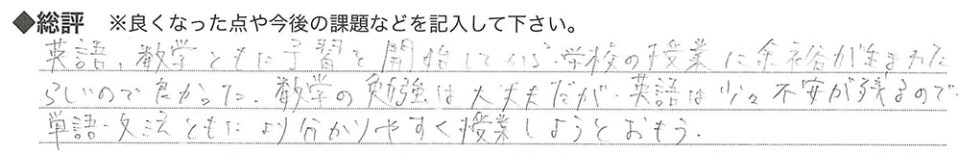 ◆総評 ※良くなった点や今後の課題などを記入して下さい。
英語、数学ともに予習を開始している。学校の授業に余裕が生まれた
らしいので良かった。数学の勉強は大丈夫だが、英語は少々不安が残るので
単語・文法ともにより分かりやすく授業しようとおもう。